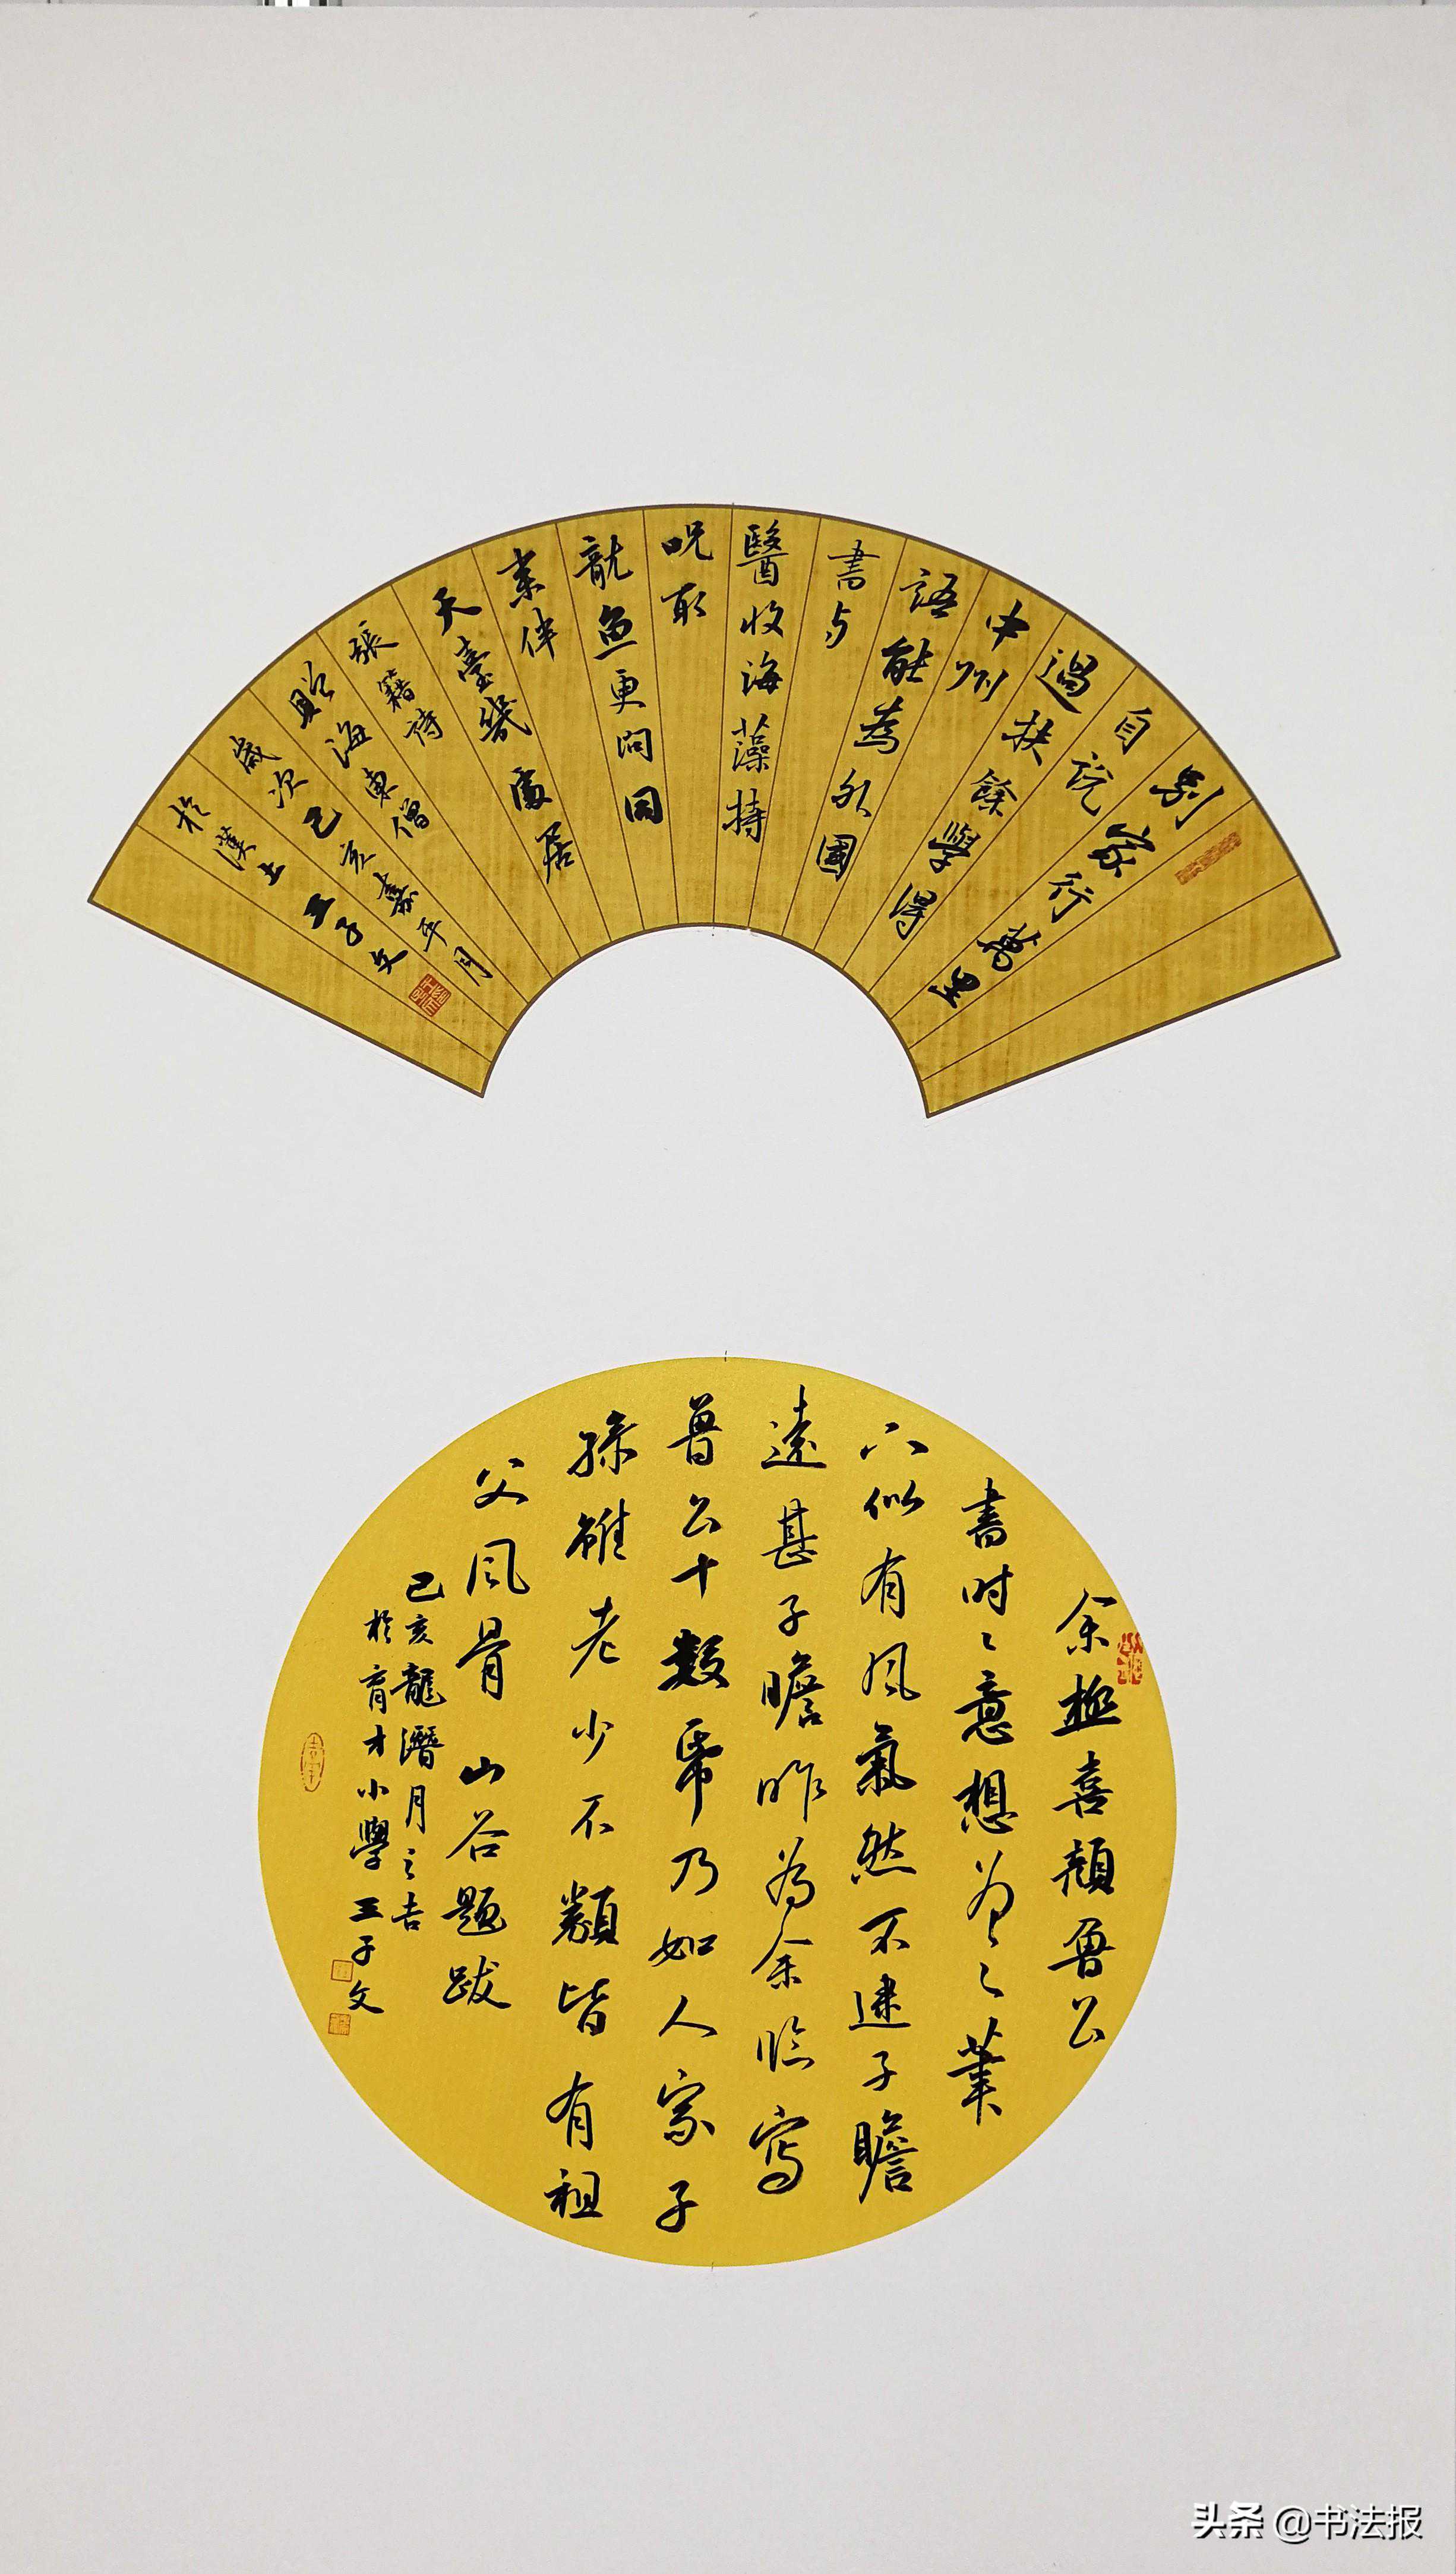 別家行萬里
自說
過扶餘學得
中州
語能為外國
書与
醫收海藻持
呪取
龍魚更問同
来伴
天臺幾處居
張籍詩
贈海東僧
歲次己亥嘉平月
於漢上王子文
余極喜顏魯公
書时〻意想為之筆
下似有風氣然不逮子瞻
遠甚子瞻昨為余臨寫
魯公十數帋乃如人家子
孫雖老少不類皆有祖
父風骨山谷題跋
己亥龍潛月之吉
於育才小學王子文
头条 @书法报